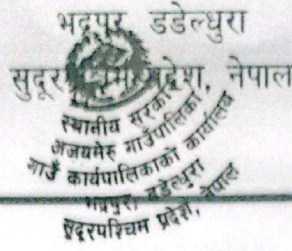 भद्रपुर, डडेल्धुरा
सुदूर प्रदेश, नेपाल
स्थानीय सरकार
अजयमेरु गाउँपालिका
गाउँ कार्यपालिकाको कार्यालय
भद्रपुर, डडेल्धुरा
सुदूरपश्चिम प्रदेश, नेपाल